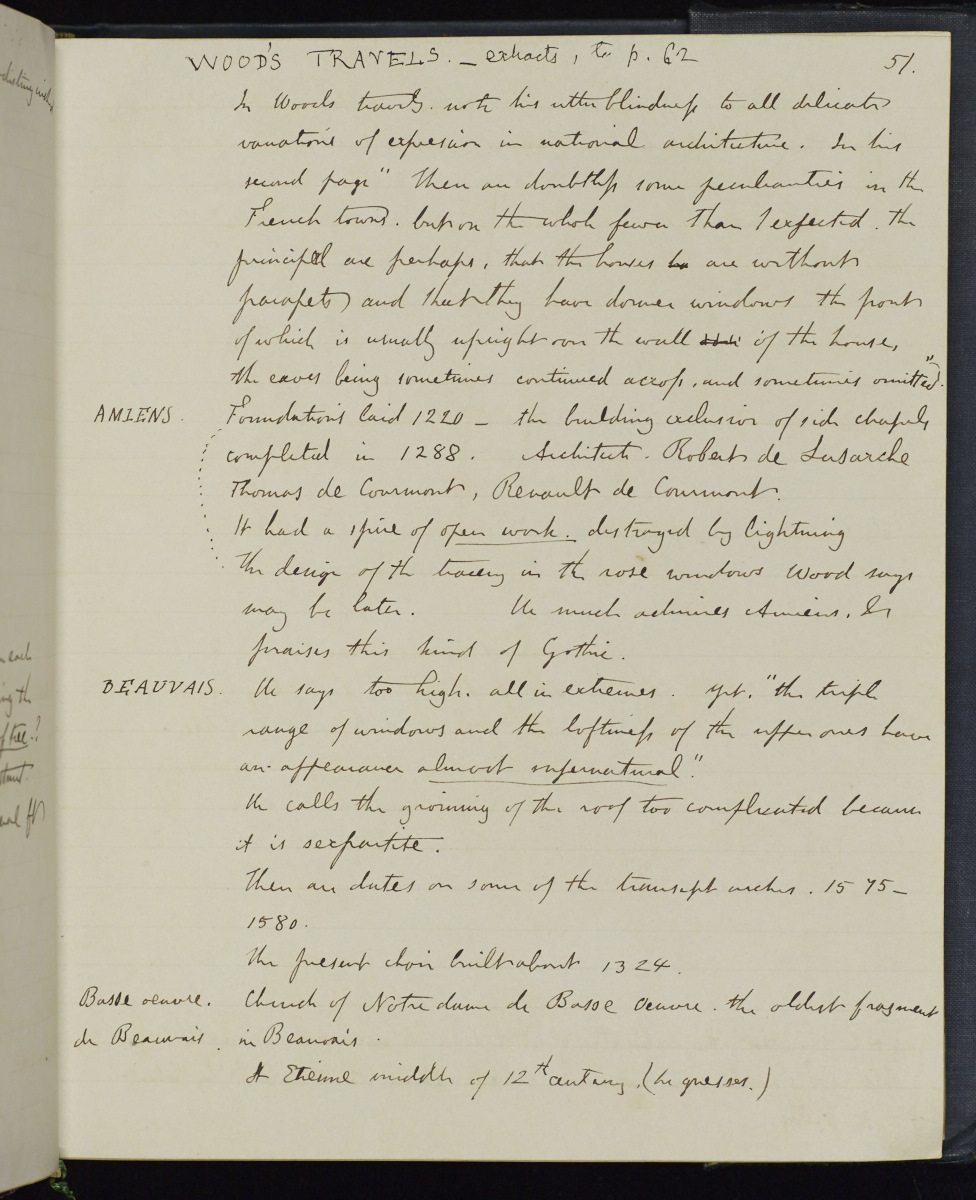 WOOD'S TRAVELS. _ extracts, to p. 62
51.
In Woods travels. note his utter blindness to all delicate
variations of expression in national architecture. In his
second page " There are doubtless some peculiarities in the
French towns. but on the whole fewer than I expected. the
principal are perhaps, that the houses are without
parapets and that they have dormer windows the front
of which is usually upright over the wall of the house,
the eaves being sometimes continued across, and sometimes omitted".
AMIENS.
Foundations laid 1220 _ the building exclusive of side chapels
completed in 1288. Architects. Robert de Lusarche
Thomas de Courmont, Renault de Courmont.
It had a spire of open work. destroyed by lightning
The design of the tracery in the rose windows Wood says
may be later. He much admires Amiens. &
praises this kind of Gothic.
BEAUVAIS.
He says too high. all in extremes. yet. "the triple
range of windows and the loftiness of the upper ones have
an appearance almost supernatural".
He calls the groining of the roof too complicated because
it is sexpartite.
There are dates on some of the transept arches. 1575_
1580.
The present choir built about 1324.
Basse oeuvre.
de Beauvais.
Church of Notre dame de Basse Oeuvre. the oldest fragment
in Beauvais.
St Etienne middle of 12th century. (he guesses.)
each
ing the